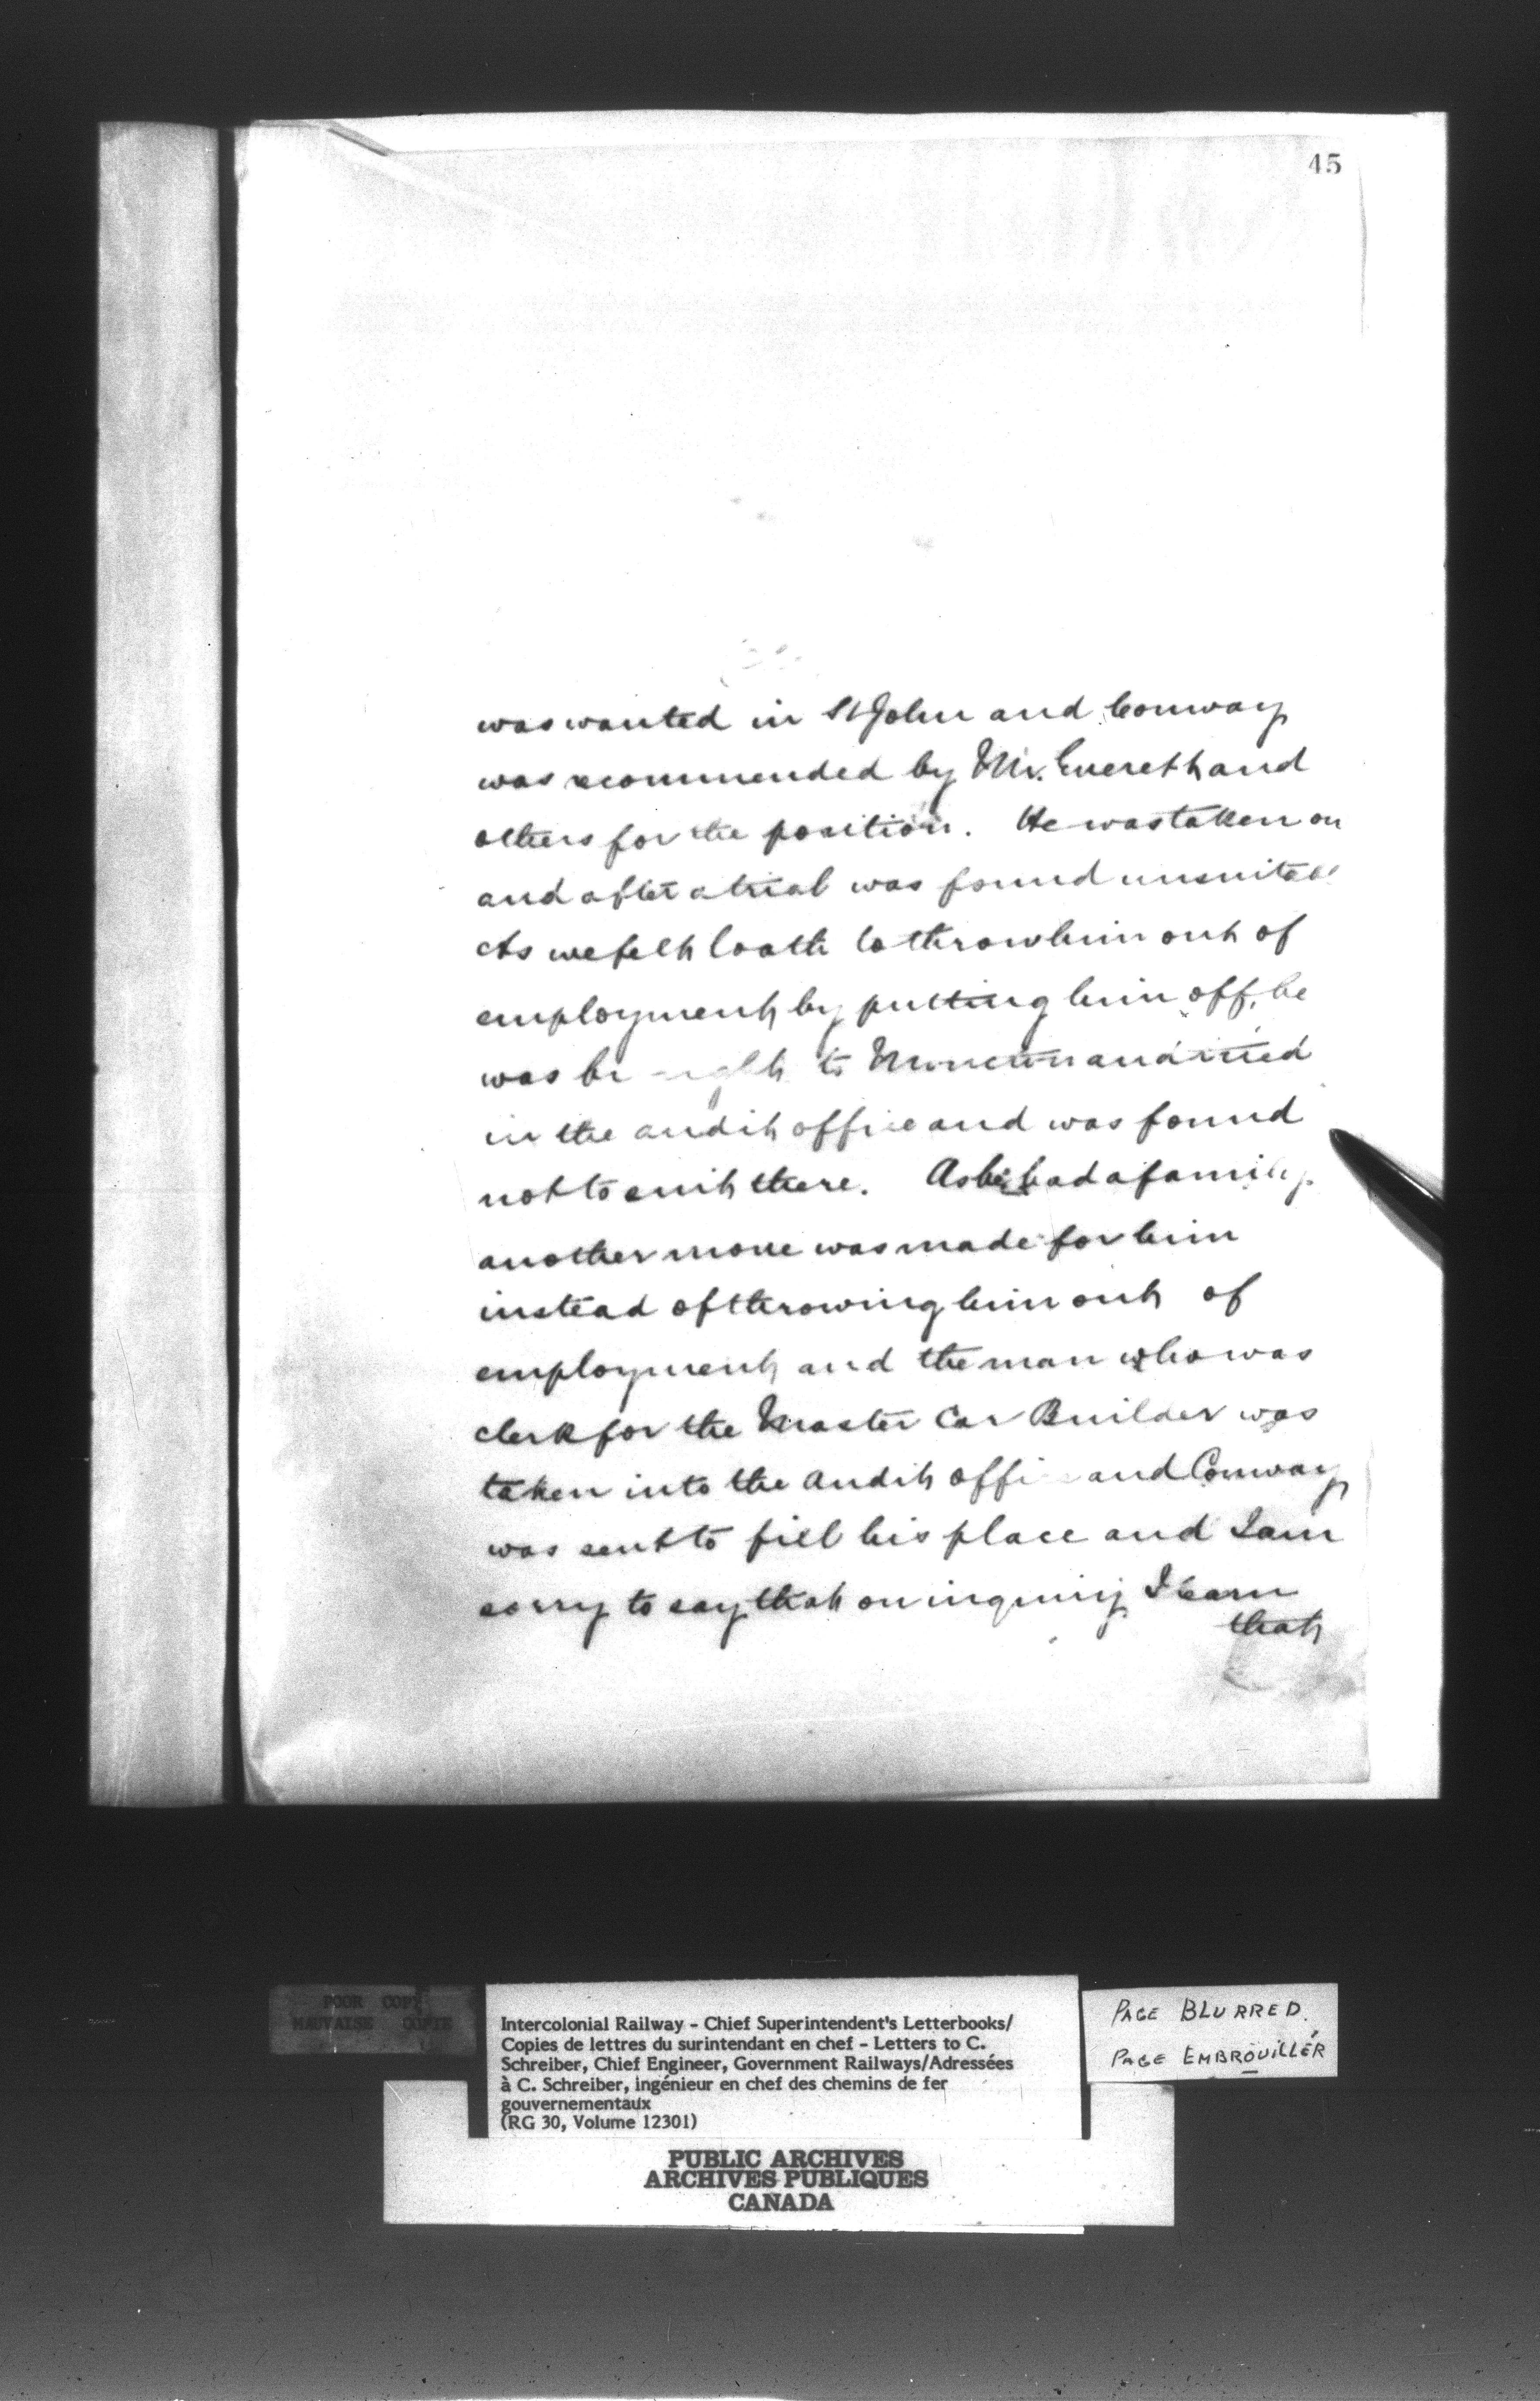 45
was wanted in St John and Conway
was recommended by Mr. Everett and
others for the position. He was taken on
and after a trial was found unsuitable
As we felt loath to throw him out of
employment by putting him off, he
was brought to Moncton and tried
in the audit office and was found
not to suit there. As he had a family
another move was made for him
instead of throwing him out of
employment and the man who was
clerk for the Master Car Builder was
taken into the audit office and Conway
was sent to fill his place and I am
sorry to say that on inquiry I learn
that
POOR COPY
MAUVAISE COPIE
Intercolonial Railway - Chief Superintendent's Letterbooks/
Copies de lettres du surintendant en chef - Letters to C.
Schreiber, Chief Engineer, Government Railways/Adressées
à C. Schreiber, ingénieur en chef des chemins de fer
gouvernementaux
(RG 30, Volume 12301)
PAGE BLURRED.
PAGE EMBROUILLÉR
PUBLIC ARCHIVES
ARCHIVES PUBLIQUES
CANADA